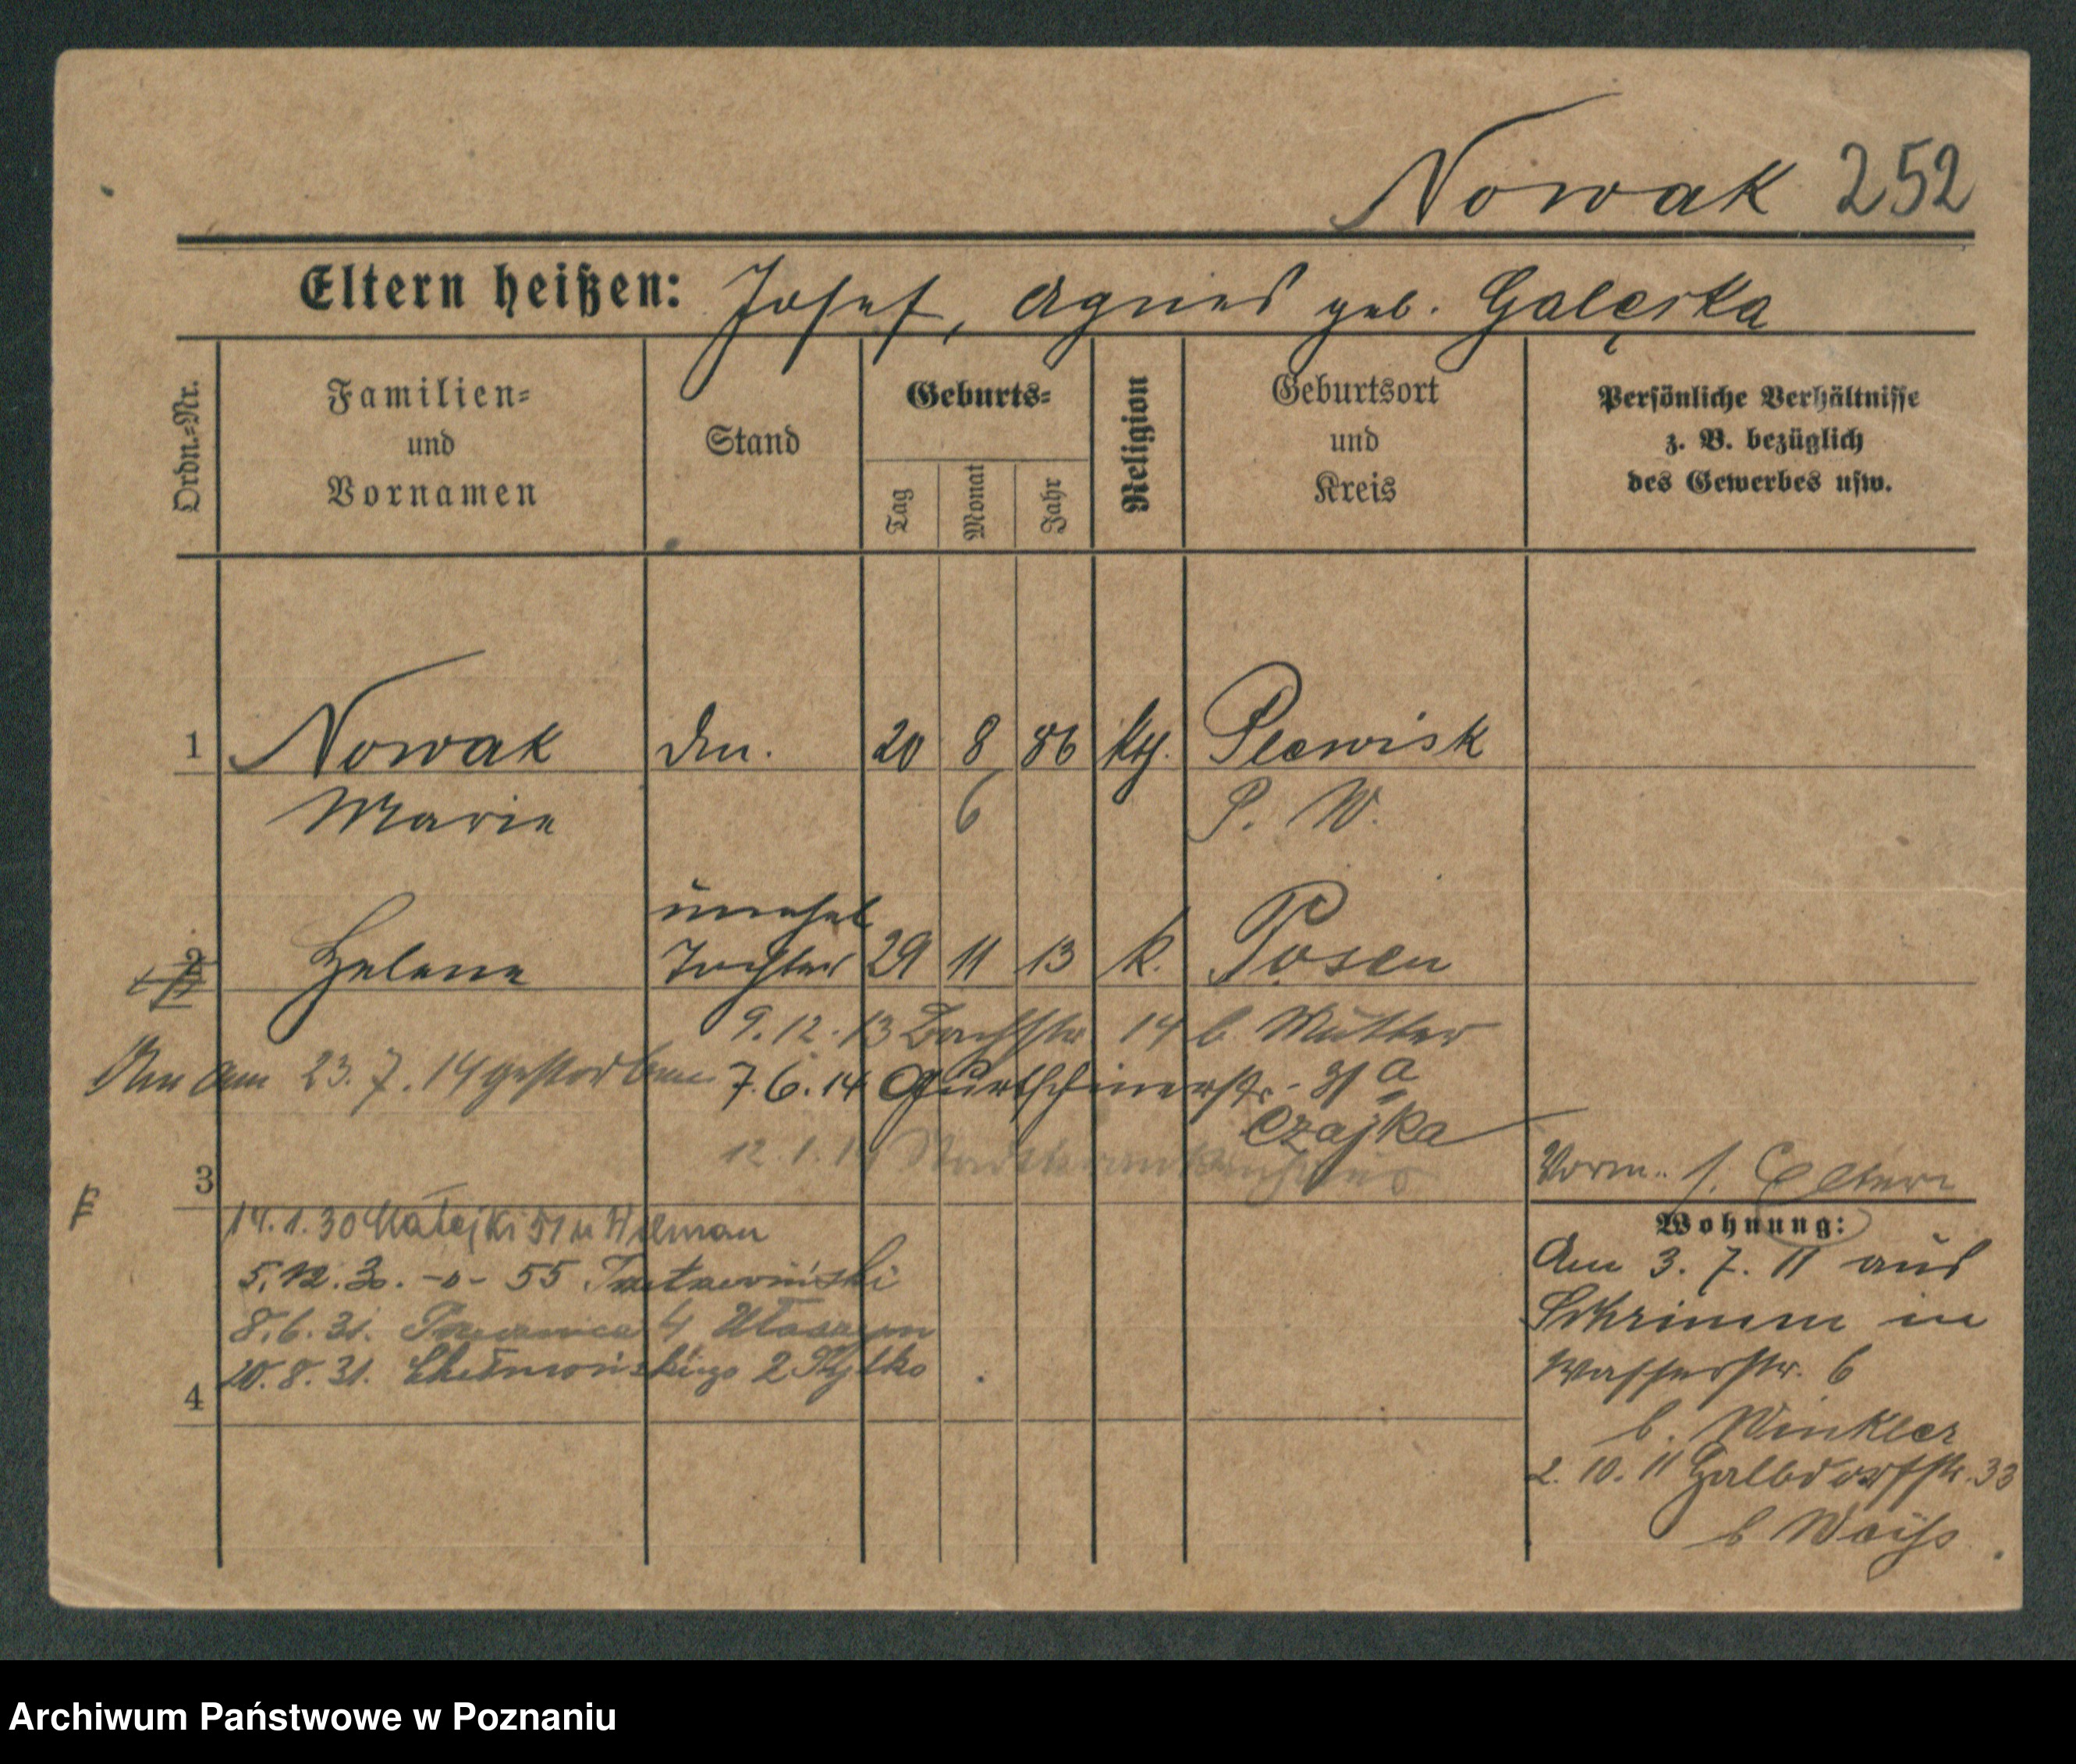 Nowak 252
Eltern heißen: Josef, Agnes geb. Galęska
Ordn.=Nr.
Familien=
und
Vornamen
Stand
Geburts=
Tag
Monat
Jahr
Religion
Geburtsort
und
Kreis
Persönliche Verhältnisse
z. B. bezüglich
des Gewerbes usw.
1 Nowak 20 8 86 kth. Plewisk
Marie 6 P. W.
unehel
2 Helene Tochter 29 11 13 k. Posen
9.12.13 Bachstr 14 b. Mutter
am 23.7.14 gestorben 7.6.14 Gurtschinerstr. 31a
Czajka
12.1.14 Stadtkrankenhaus
3
Vorm. s. Eltern
14.1.30 Matejki 51
5.12.30. -o- 55
8.6.31. 4
10.8.31. Chełmońskiego 2
4
Wohnung:
Am 3.7.11 aus
Schrimm in
Wasserstr. 6
b. Winkler
2.10.11 Halbdorfstr. 33
b Weiss
Archiwum Państwowe w Poznaniu